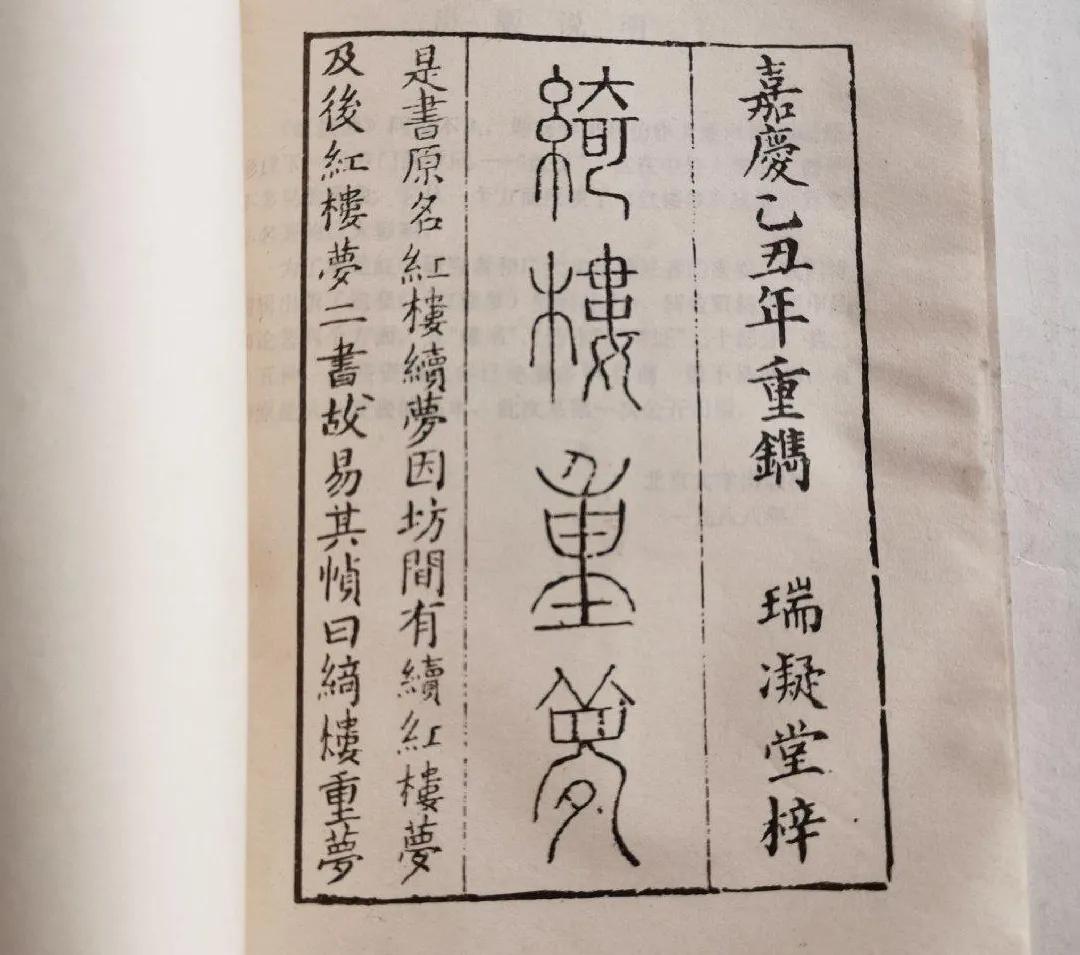 嘉慶乙丑年重鐫 瑞凝堂梓
綺樓重夢
是書原名紅樓續夢因坊間有續紅樓夢
及後紅樓夢二書故易其幀曰綺樓重夢